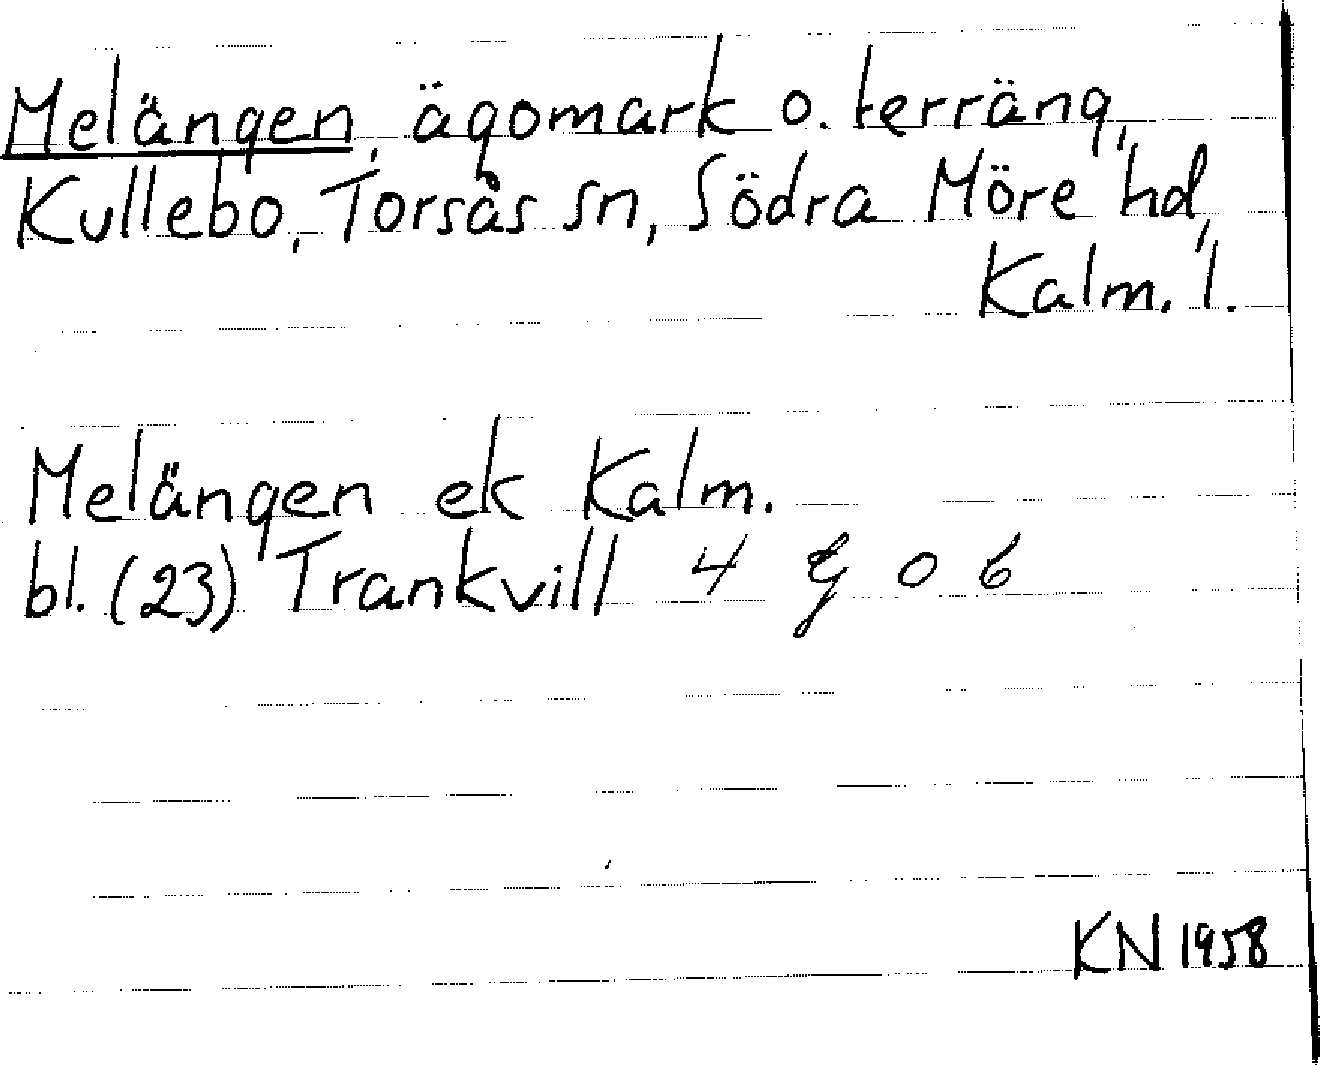 Melängen, ägomark o. terräng,
Kullebo, Torsås sn, Södra Möre hd,
Kalm. l.
Melängen ek Kalm.
bl. (23) Trankvill 4 g o 6
KN 1958